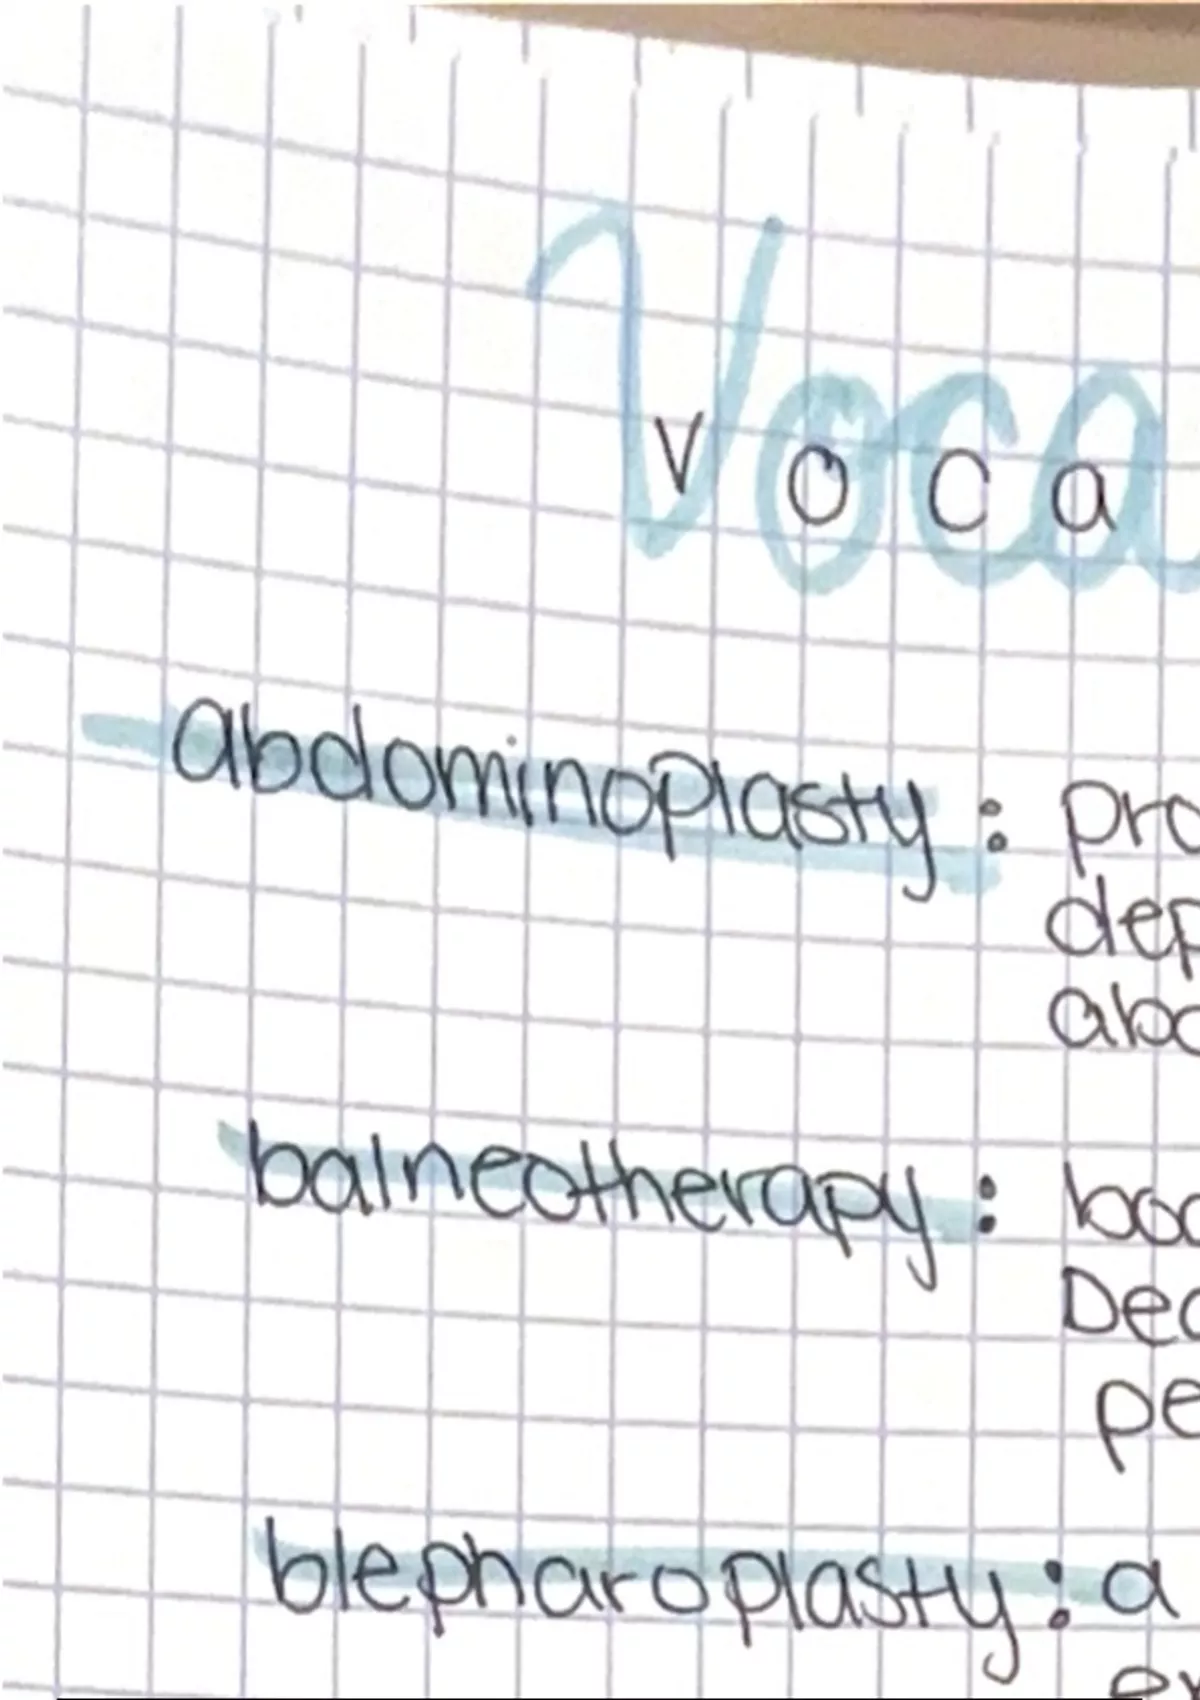 Voca
V o c a
abdominoplasty: pro
dep
abd
balneotherapy:
pe
blepharoplasty: a